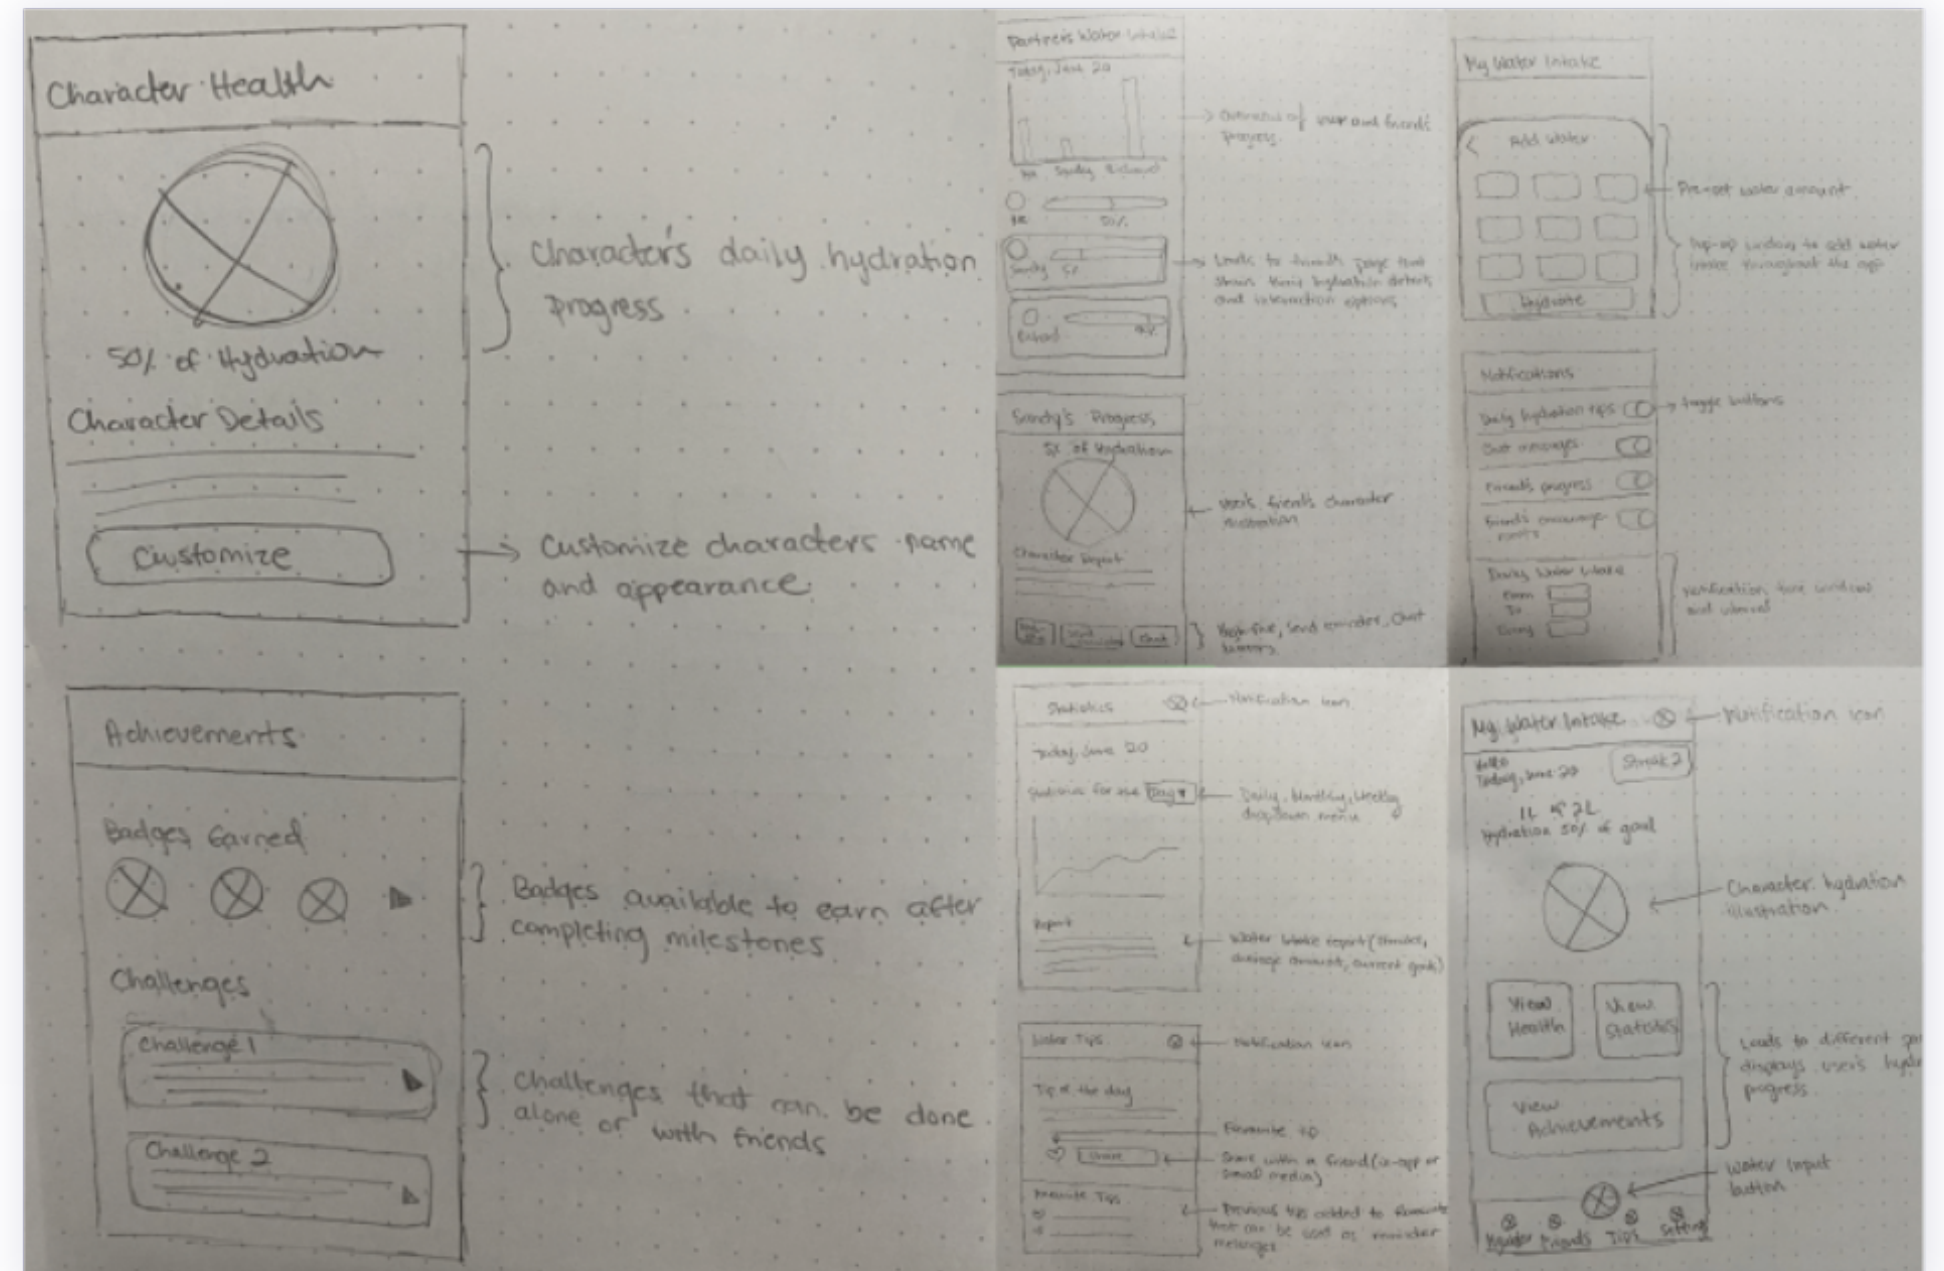 Character Health
50% of Hydration
Character Details
Customize
Character's daily hydration
progress
Customize characters name
and appearance.
Achievements
Badges Earned
Challenges
Challenge 1
Challenge 2
Badges available to earn after
completing milestones
Challenges that can be done
alone or with friends
Partner's Water Intake
Today, June 20
Me Sandy Richard
Me
50%
Sandy 5%
Richard
Overview of user and friend's
progress.
Leads to friend's page that
shows their hydration details
and interaction options
Sandy's Progress
5% of Hydration
Character Report
Chat
User's friend's character
illustration
High-five, Send reminder, Chat
buttons
My Water Intake
Add Water
Hydrate
Pre-set water amount
Pop-up window to add water
intake throughout the app
Notifications
Daily hydration tips
Chat messages
Friend's progress
Friend's encourage-
ments
toggle buttons
Water Intake
From
To
Every
Notification time window
and interval
Statistics
Today, June 20
Statistics for the Day
Report
Notification icon
Daily, Monthly, Weekly
dropdown menu
Water intake report (
average amount, current goal)
Water Tips
Tip of the day
Share
Favourite Tips
Notification icon
Favourite
Share with a friend (in-app or
social media)
Previous tips added to favourite
that can be used as reminder
messages
My Water Intake
Hello
Today, June 20
Streak 2
1L of 2L
Hydration 50% of goal
View
Health
View
Statistics
View
Achievements
Friends Tips Setting
Notification icon
Character hydration
illustration
Leads to different
displays user's
progress
Water input
button